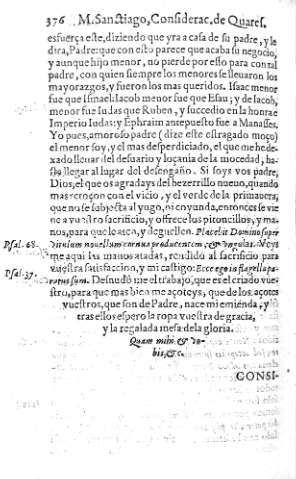 376 M. Sanctiago, Considerac. de Quares.
esfuerça este, diziendo que yra a casa de su padre, y le
dira, Padre: que con esto parece que acaba su negocio,
y aunque hijo menor, no pierde por esso para con tal
padre, con quien siempre los menores se lleuaron los
mayorazgos, y fueron los mas queridos. Isaac menor
fue que Ismael: Iacob menor fue que Esau; y de Iacob,
menor fue Iudas que Ruben, y succedio en la honra e
Imperio Iudas: y Ephraim antepuesto fue a Manasses.
Yo pues, amoroso padre (dize este estragado moço)
el menor soy, y el mas desperdiciado, el que me he de-
xado lleuar del desuario y loçania de la mocedad, ha-
sta llegar al lugar del desengaño. Si soys vos padre,
Dios, el que os agradays del bezerrillo nueuo, quando
mas retoçon con el vicio, y el verde de la primauera,
que no se subjecta al yugo, ni coyunda, entonces se vie
ne a vuestro sacrificio, y offrece los pitoncillos, y ma-
nos, para que lo aten, y deguellen. Placebit Domino super
Psal. 68. vitulum nouellum cornua producentem, & vngulas. Veys
me aqui las manos atadas, rendido al sacrificio para
vuestra satisfaccion, y mi castigo: Ecce ego in flagella pa-
Psal. 37. ratus sum. Desnudo me el trabajo, que es el criado vue-
stro, para que mas bien me açoteys, que de los açotes
vuestros, que son de Padre, nace mi emiēda, y
tras ellos espero la ropa vuestra de gracia,
y la regalada mesa dela gloria.
Quam mihi & vo-
bis, &c.
CONSI-